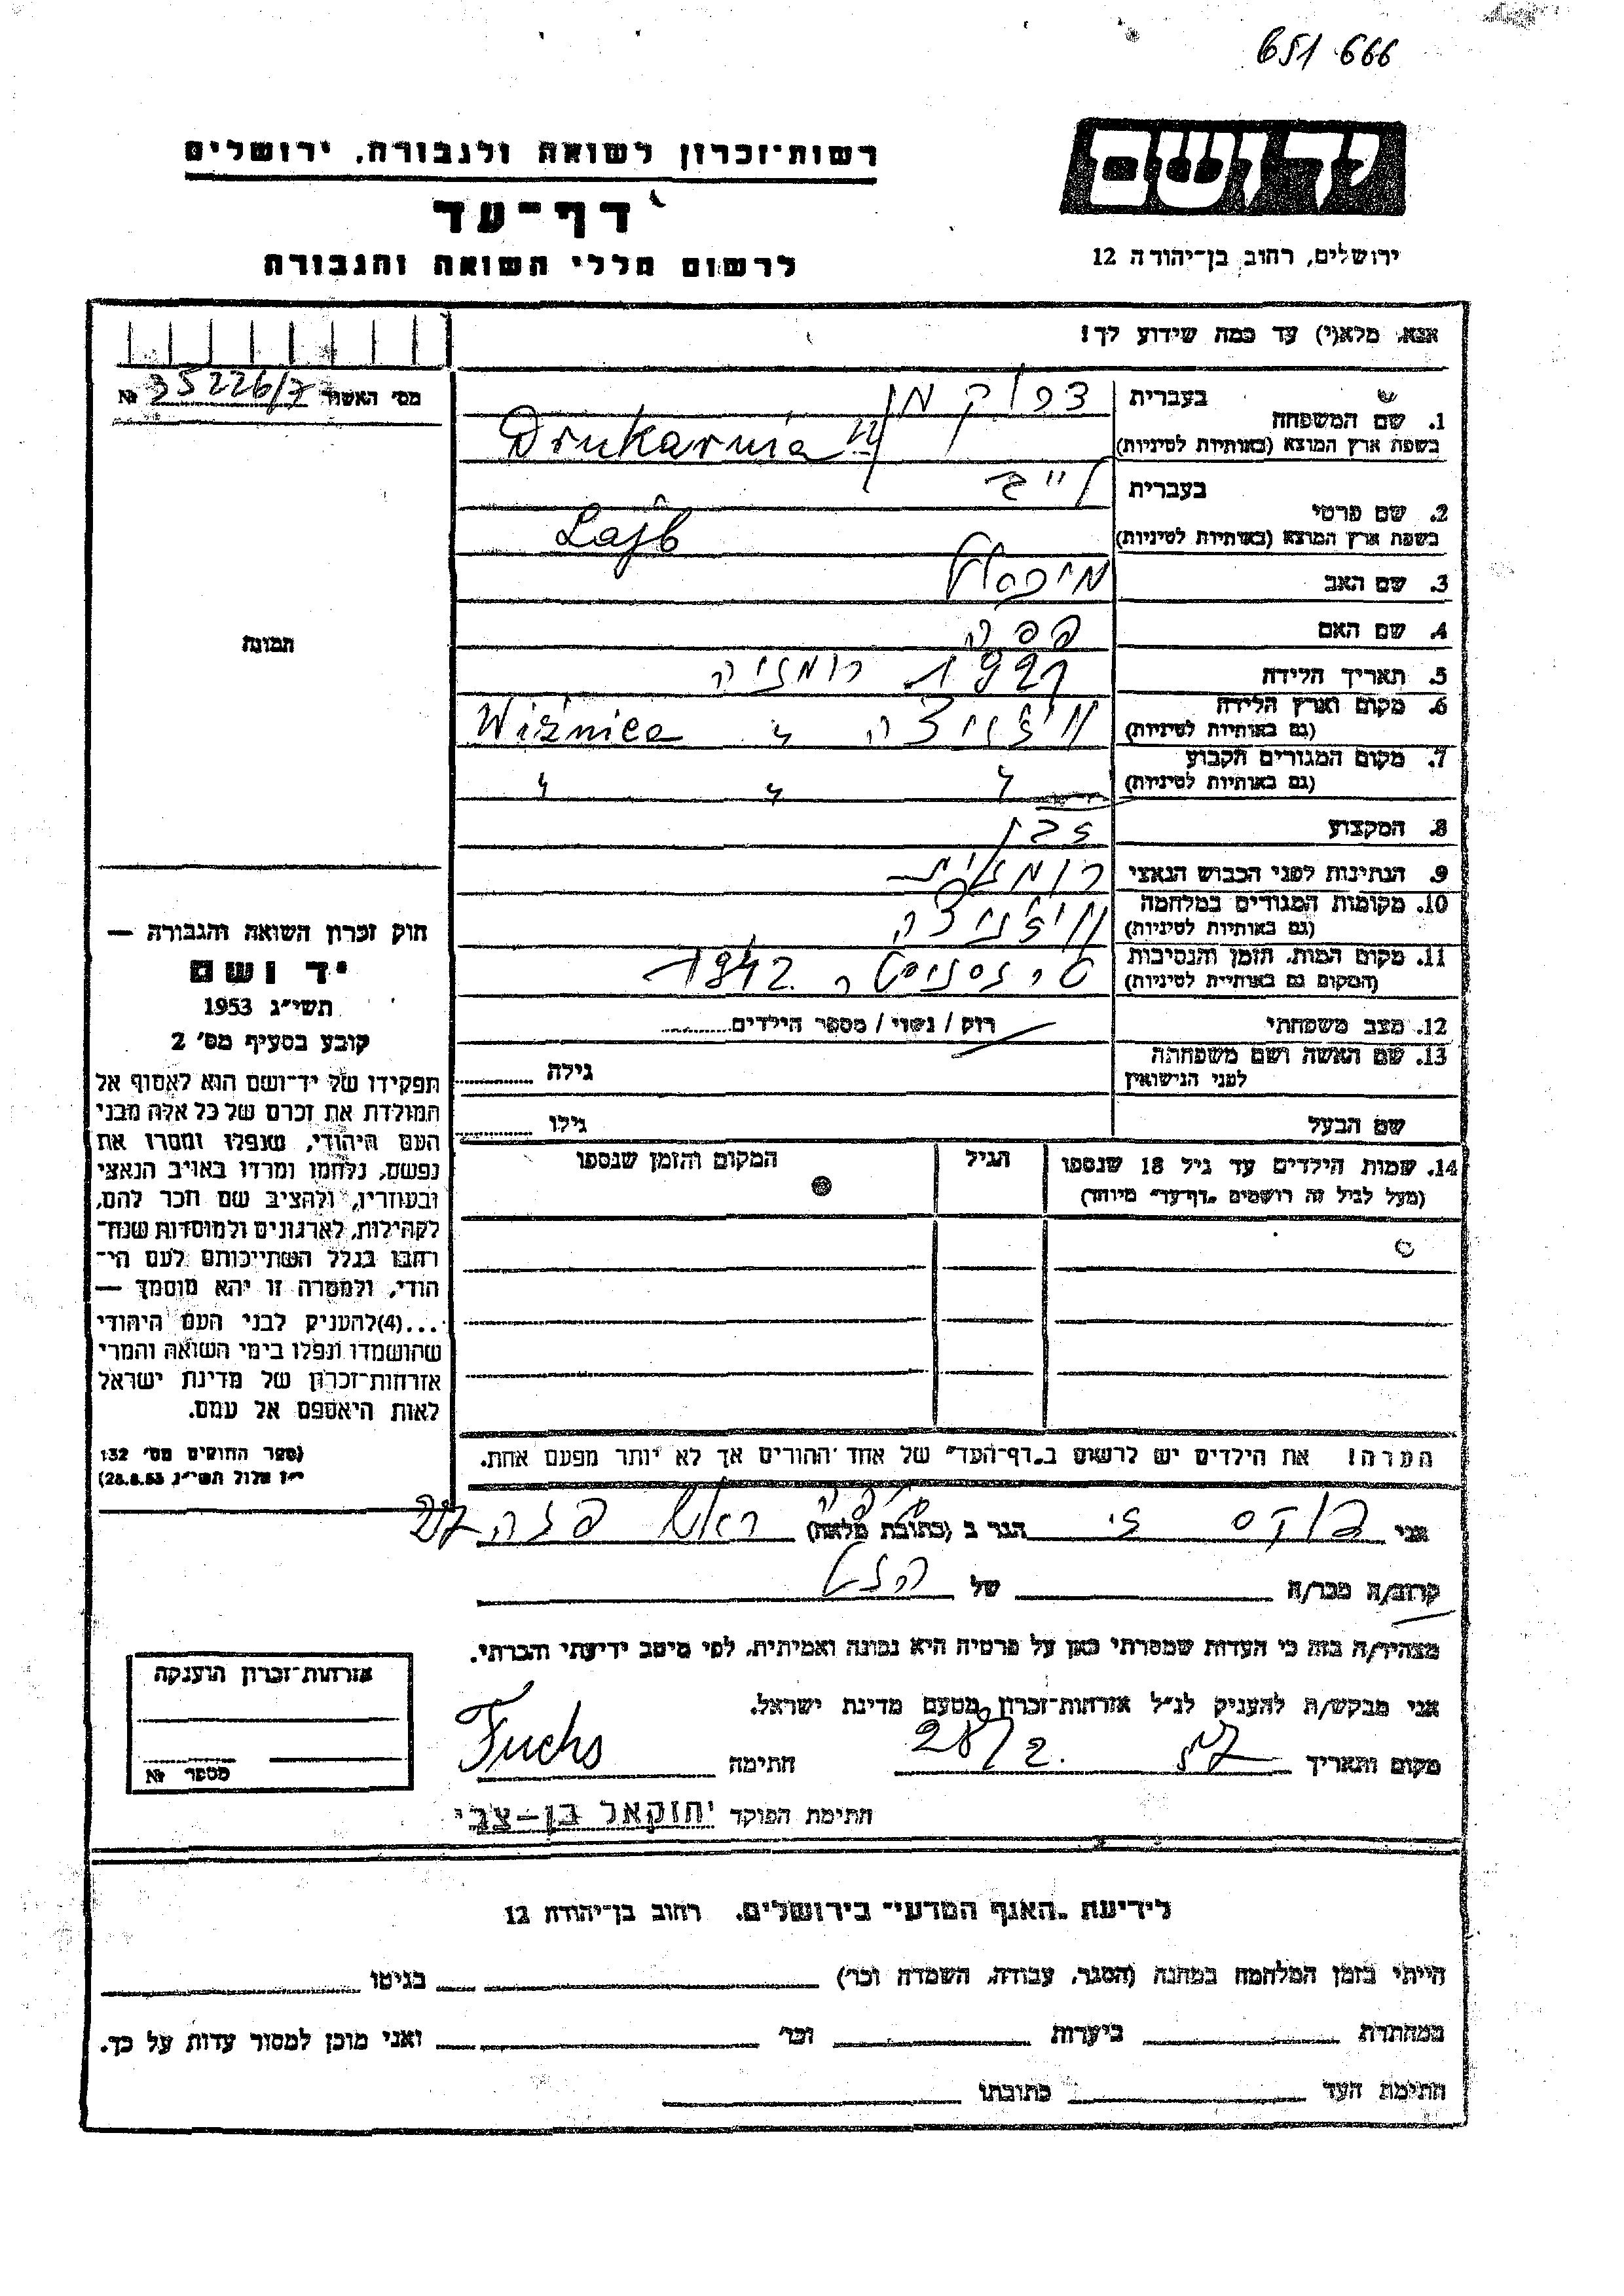 651 666
רשות-זכרון לשואה ולגבורה, ירושלים
יד ושם
דף-עד
לרשום חללי השואה והגבורה
ירושלים, רחוב בן-יהודה 12
אנא, מלא(י) עד כמה שידוע לך!
מס' האשור 35226/7 №
1. שם המשפחה
בעברית
בשפת ארץ המוצא (באותיות לטיניות) Drukarnia
2. שם פרטי
בעברית לייב
בשפת ארץ המוצא (באותיות לטיניות) Lajb
3. שם האב
4. שם האם
5. תאריך הלידה 1921 רומניה
6. מקום וארץ הלידה
(גם באותיות לטיניות) ויז'ניצה Wiżnica
7. מקום המגורים הקבוע
(גם באותיות לטיניות) " " "
8. המקצוע
9. הנתינות לפני הכבוש הנאצי רומנית
10. מקומות המגורים במלחמה
(גם באותיות לטיניות) ויז'ניצה
11. מקום המות, הזמן והנסיבות
(המקום גם באותיות לטיניות) טרנסניסטריה 1942
12. מצב משפחתי רווק / נשוי / מספר הילדים
13. שם האשה ושם משפחתה
לפני הנישואין
גילה
שם הבעל גילו
14. שמות הילדים עד גיל 18 שנספו הגיל המקום והזמן שנספו
(מעל לגיל זה רושמים "דף-עד" מיוחד)
הערה! את הילדים יש לרשום ב"דף-העד" של אחד ההורים אך לא יותר מפעם אחת.
תמונה
חוק זכרון השואה והגבורה —
יד ושם
תשי"ג 1953
קובע בסעיף מס' 2
תפקידו של יד-ושם הוא לאסוף אל
המולדת את זכרם של כל אלה מבני
העם היהודי, שנפלו ומסרו את
נפשם, נלחמו ומרדו באויב הנאצי
ובעוזריו, ולהציב שם וזכר להם,
לקהילות, לארגונים ולמוסדות שנח-
רבו בגלל השתייכותם לעם הי-
הודי, ולמטרה זו יהא מוסמך —
...(4) להעניק לבני העם היהודי
שהושמדו ונפלו בימי השואה והמרי
אזרחות-זכרון של מדינת ישראל
לאות היאספם אל עמם.
(ספר החוקים מס' 132
י"ז אלול תשי"ג 28.8.53)
אני פוקס הגר ב (כתובת מלאה) ראש פנה
קרוב/ה מכר/ה של הנ"ל
מצהיר/ה בזה כי העדות שמסרתי כאן על פרטיה היא נכונה ואמיתית, לפי מיטב ידיעתי והכרתי.
אני מבקש/ת להעניק לנ"ל אזרחות-זכרון מטעם מדינת ישראל.
מקום ותאריך 28/2. 57 חתימה Fuchs
חתימת הפוקד יחזקאל בן-צבי
אזרחות-זכרון הוענקה
מספר №
לידיעת "האגף המדעי" בירושלים, רחוב בן-יהודה 12
הייתי בזמן המלחמה במחנה (הסגר, עבודה, השמדה וכו') בגיטו
במחתרת ביערות וכו' ואני מוכן למסור עדות על כך.
חתימת העד כתובתו